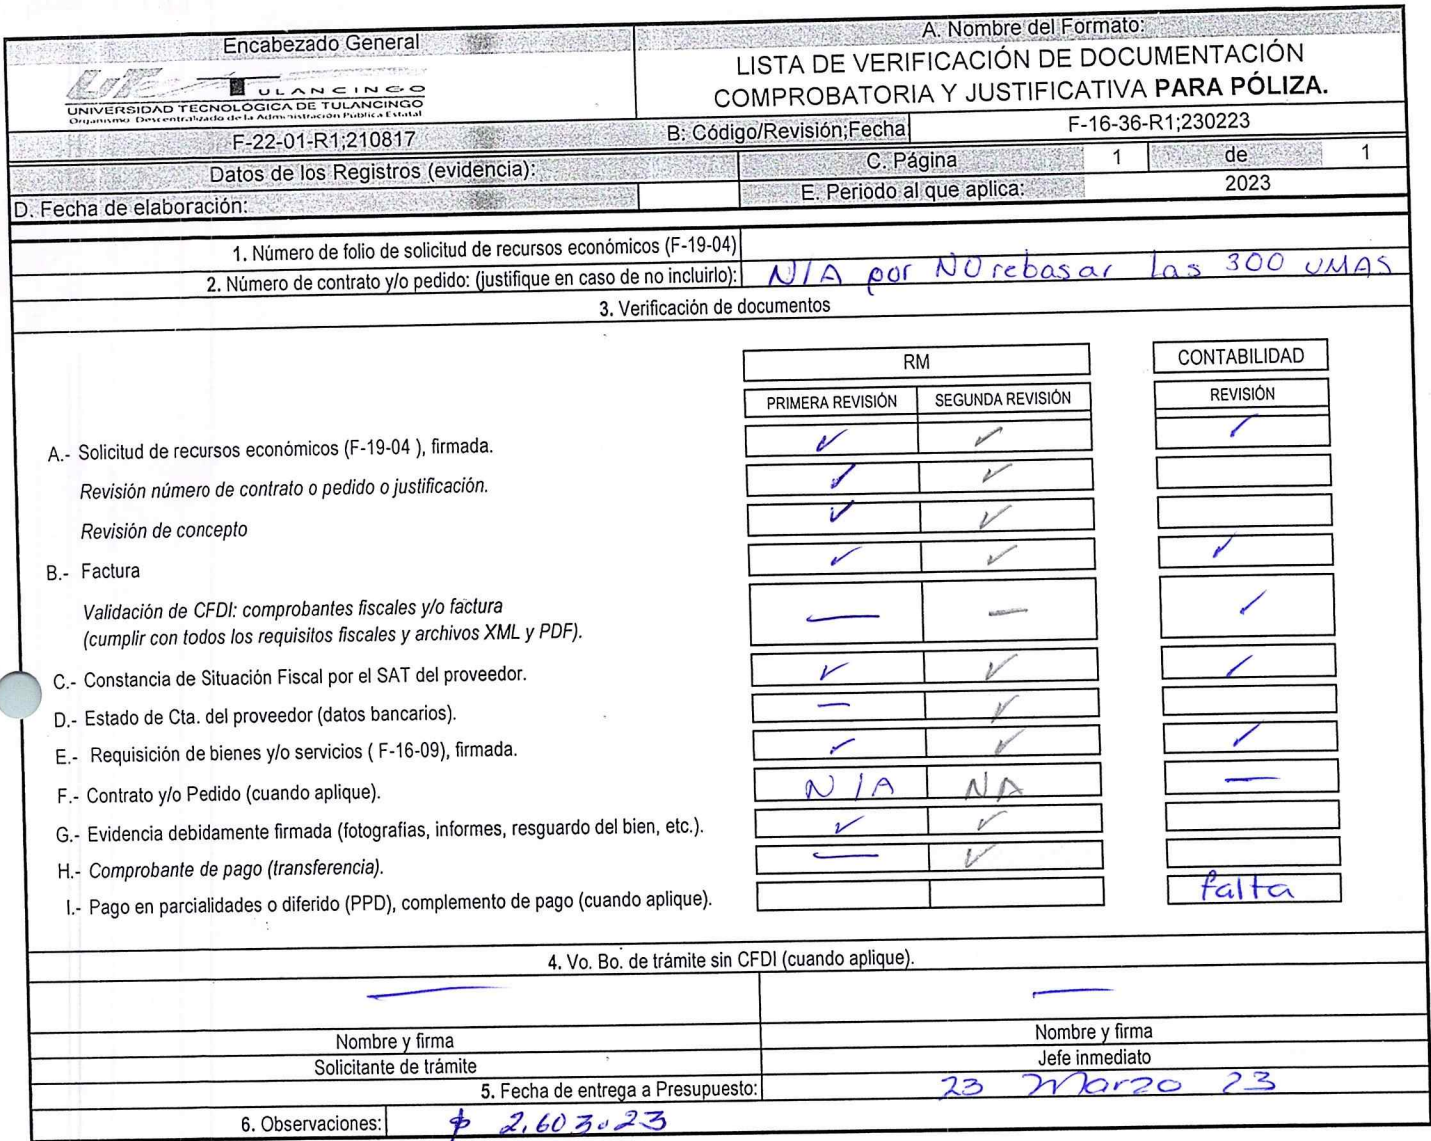 Encabezado General
A. Nombre del Formato:
UTec TULANCINGO
UNIVERSIDAD TECNOLÓGICA DE TULANCINGO
Organismo Descentralizado de la Administración Pública Estatal
LISTA DE VERIFICACIÓN DE DOCUMENTACIÓN
COMPROBATORIA Y JUSTIFICATIVA PARA PÓLIZA.
F-22-01-R1;210817
B: Código/Revisión;Fecha
F-16-36-R1;230223
Datos de los Registros (evidencia):
C. Página 1 de 1
D. Fecha de elaboración:
E. Periodo al que aplica: 2023
1. Número de folio de solicitud de recursos económicos (F-19-04)
2. Número de contrato y/o pedido: (justifique en caso de no incluirlo): N/A por NO rebasar las 300 UMAS
3. Verificación de documentos
RM CONTABILIDAD
PRIMERA REVISIÓN SEGUNDA REVISIÓN REVISIÓN
A.- Solicitud de recursos económicos (F-19-04 ), firmada. ✓ ✓ ✓
Revisión número de contrato o pedido o justificación. ✓ ✓
Revisión de concepto ✓ ✓
B.- Factura ✓ ✓ ✓
Validación de CFDI: comprobantes fiscales y/o factura
(cumplir con todos los requisitos fiscales y archivos XML y PDF). — — ✓
C.- Constancia de Situación Fiscal por el SAT del proveedor. ✓ ✓ ✓
D.- Estado de Cta. del proveedor (datos bancarios). — ✓
E.- Requisición de bienes y/o servicios ( F-16-09), firmada. ✓ ✓ ✓
F.- Contrato y/o Pedido (cuando aplique). N/A NA —
G.- Evidencia debidamente firmada (fotografías, informes, resguardo del bien, etc.). ✓ ✓
H.- Comprobante de pago (transferencia). — ✓
I.- Pago en parcialidades o diferido (PPD), complemento de pago (cuando aplique). falta
4. Vo. Bo. de trámite sin CFDI (cuando aplique).
— —
Nombre y firma Nombre y firma
Solicitante de trámite Jefe inmediato
5. Fecha de entrega a Presupuesto: 23 Marzo 23
6. Observaciones: $ 2,603.23